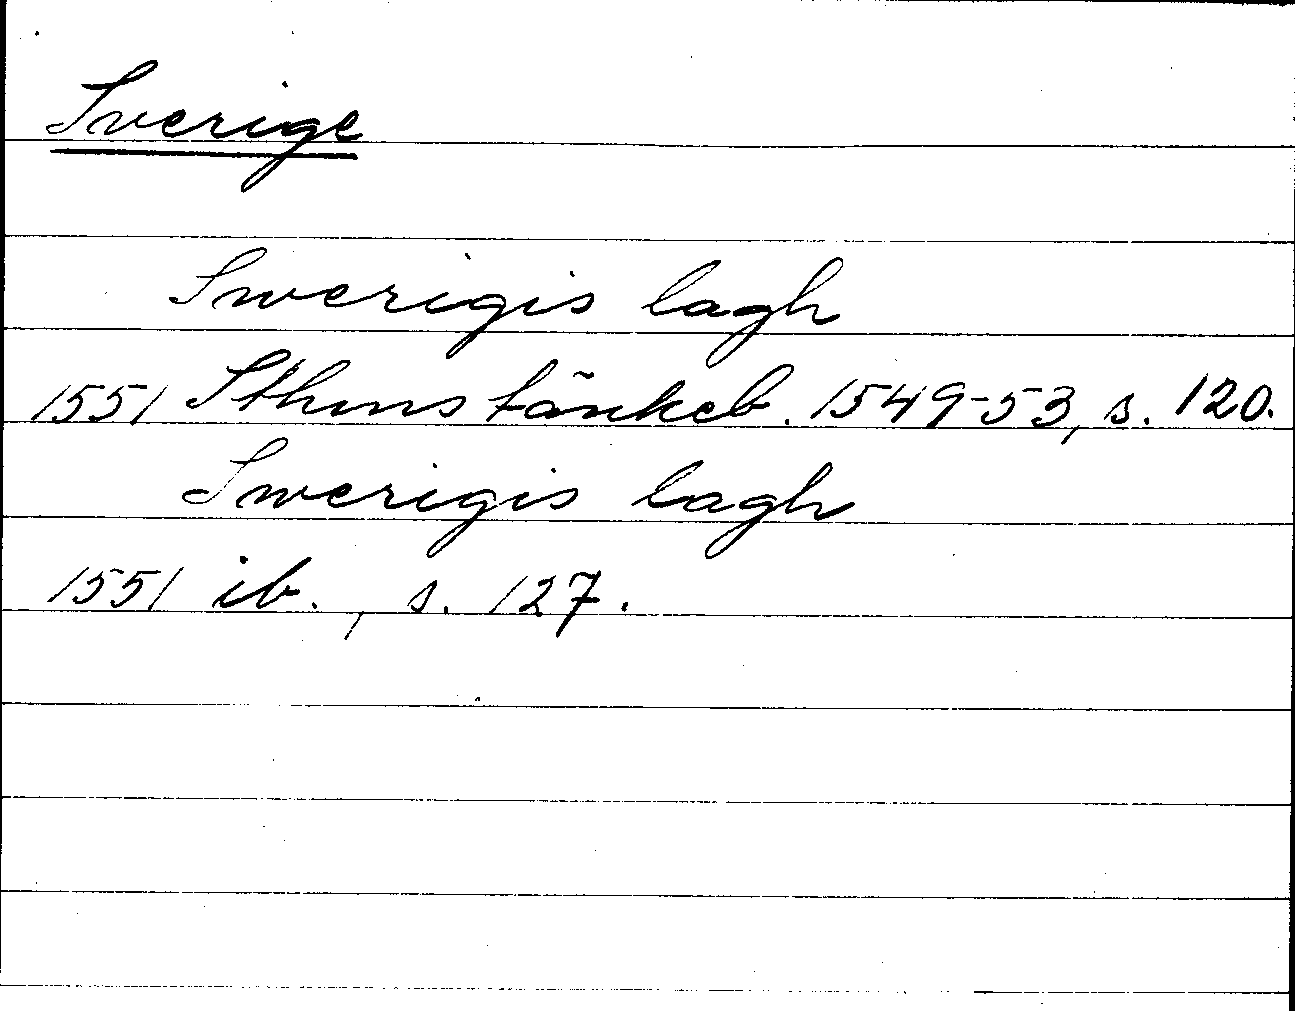 Sverige
Swerigis lagh
1551 Sthms tänkeb. 1549-53, s. 120.
Swerigis lagh
1551 ib., s. 127.